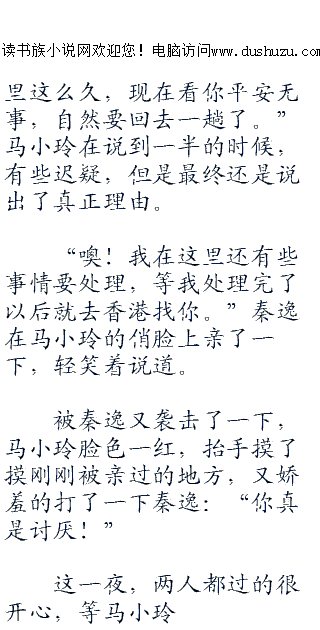 读书族小说网欢迎您！电脑访问www.dushuzu.com
里这么久，现在看你平安无
事，自然要回去一趟了。”
马小玲在说到一半的时候，
有些迟疑，但是最终还是说
出了真正理由。
“噢！我在这里还有些
事情要处理，等我处理完了
以后就去香港找你。”秦逸
在马小玲的俏脸上亲了一
下，轻笑着说道。
被秦逸又袭击了一下，
马小玲脸色一红，抬手摸了
摸刚刚被亲过的地方，又娇
羞的打了一下秦逸：“你真
是讨厌！”
这一夜，两人都过的很
开心，等马小玲